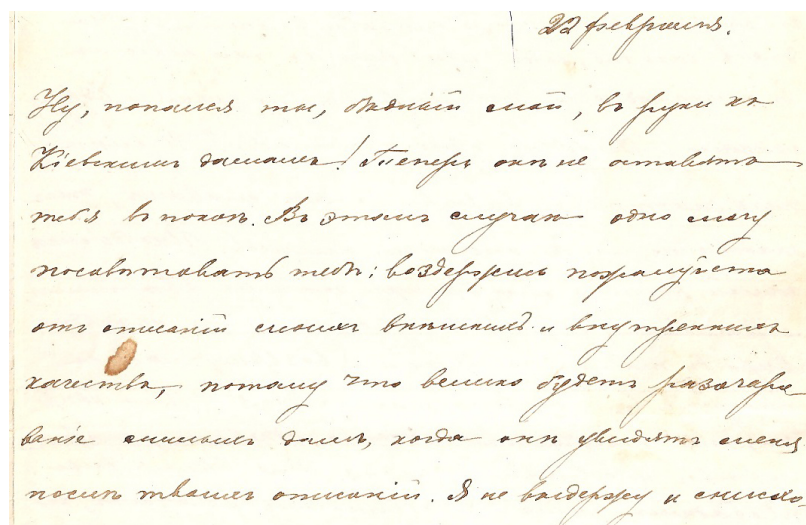 22 февраля.
Ну, попался ты, бѣдный мой, въ руки къ
Кіевскимъ дамамъ! Теперь онѣ не оставятъ
тебя въ покоѣ. Въ этомъ случаѣ одно могу
посовѣтовать тебѣ: воздержись пожалуйста
отъ описаній моихъ внѣшнихъ и внутреннихъ
качествъ, потому что велико будетъ разочаро-
ванье милыхъ дамъ, когда онѣ увидятъ меня
послѣ твоихъ описаній. Я не выдержу и снисхо-